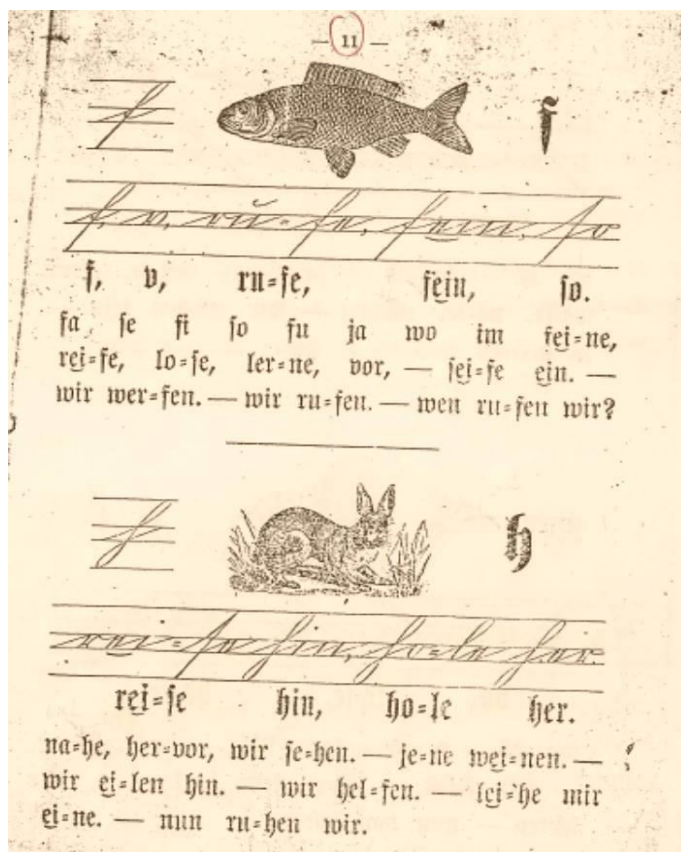 — 11 —
f f
f, v, ru=fe, fein, ſo
f, v, ru=fe, fein, ſo.
fa fe fi fo fu ja wo im fei=ne,
rei=fe, lo=ſe, ler=ne, vor, — ſei=fe ein. —
wir wer=fen. — wir ru=fen. — wen ru=fen wir?
h h
rei=ſe hin, ho=le her.
rei=ſe hin, ho=le her.
na=he, her=vor, wir ſe=hen. — je=ne wei=nen. —
wir ei=len hin. — wir hel=fen. — lei=he mir
ei=ne. — nun ru=hen wir.